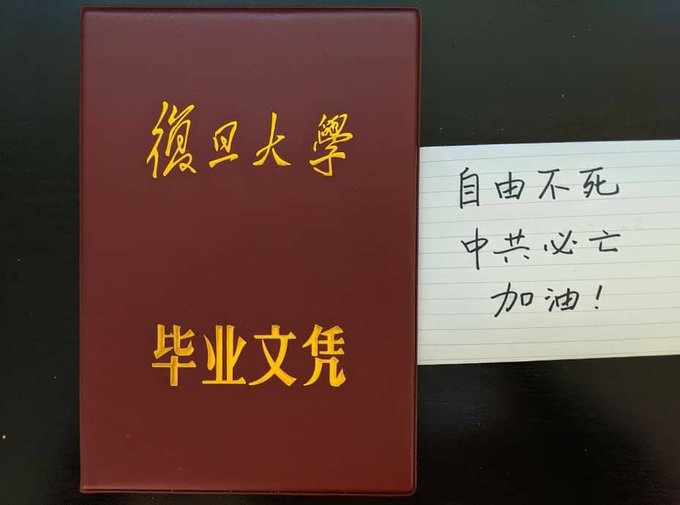 復旦大學
毕业文凭
自由不死
中共必亡
加油！